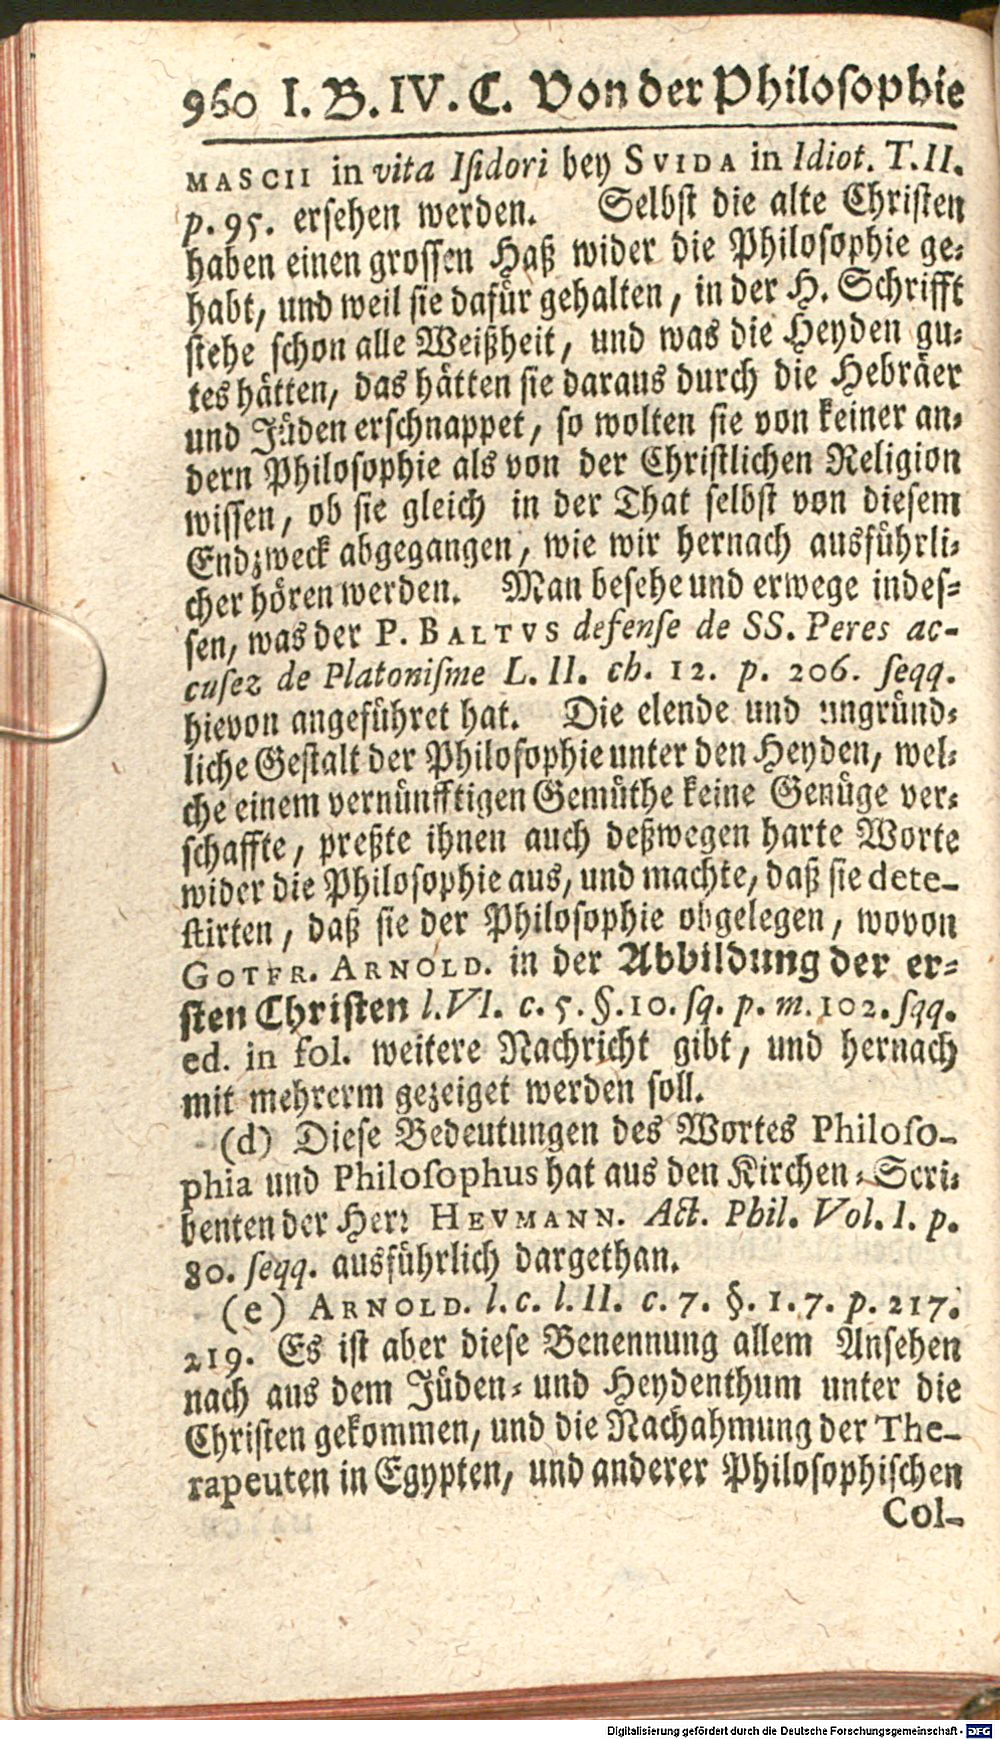 960 I. B. IV. C. Von der Philosophie
MASCII in vita Isidori bey SVIDA in Idiot. T. II.
p. 95. ersehen werden. Selbst die alte Christen
haben einen grossen Haß wider die Philosophie ge-
habt, und weil sie dafür gehalten, in der H. Schrifft
stehe schon alle Weißheit, und was die Heyden gu-
tes hätten, das hätten sie daraus durch die Hebräer
und Jüden erschnappet, so wolten sie von keiner an-
dern Philosophie als von der Christlichen Religion
wissen, ob sie gleich in der That selbst von diesem
Endzweck abgegangen, wie wir hernach ausführli-
cher hören werden. Man besehe und erwege indes-
sen, was der P. BALTVS defense de SS. Peres ac-
cusez de Platonisme L. II. ch. 12. p. 206. seqq.
hievon angeführet hat. Die elende und ungründ-
liche Gestalt der Philosophie unter den Heyden, wel-
che einem vernünfftigen Gemüthe keine Genüge ver-
schaffte, preßte ihnen auch deßwegen harte Worte
wider die Philosophie aus, und machte, daß sie dete-
stirten, daß sie der Philosophie obgelegen, wovon
GOTFR. ARNOLD. in der Abbildung der er-
sten Christen l. VI. c. 5. §. 10. sq. p. m. 102. sqq.
ed. in fol. weitere Nachricht gibt, und hernach
mit mehrerm gezeiget werden soll.
(d) Diese Bedeutungen des Wortes Philoso-
phia und Philosophus hat aus den Kirchen-Scri-
benten der Herr HEVMANN. Act. Phil. Vol. I. p.
80. seqq. ausführlich dargethan.
(e) ARNOLD. l. c. l. II. c. 7. §. 1. 7. p. 217.
219. Es ist aber diese Benennung allem Ansehen
nach aus dem Jüden- und Heydenthum unter die
Christen gekommen, und die Nachahmung der The-
rapeuten in Egypten, und anderer Philosophischen
Col-
Digitalisierung gefördert durch die Deutsche Forschungsgemeinschaft - DFG